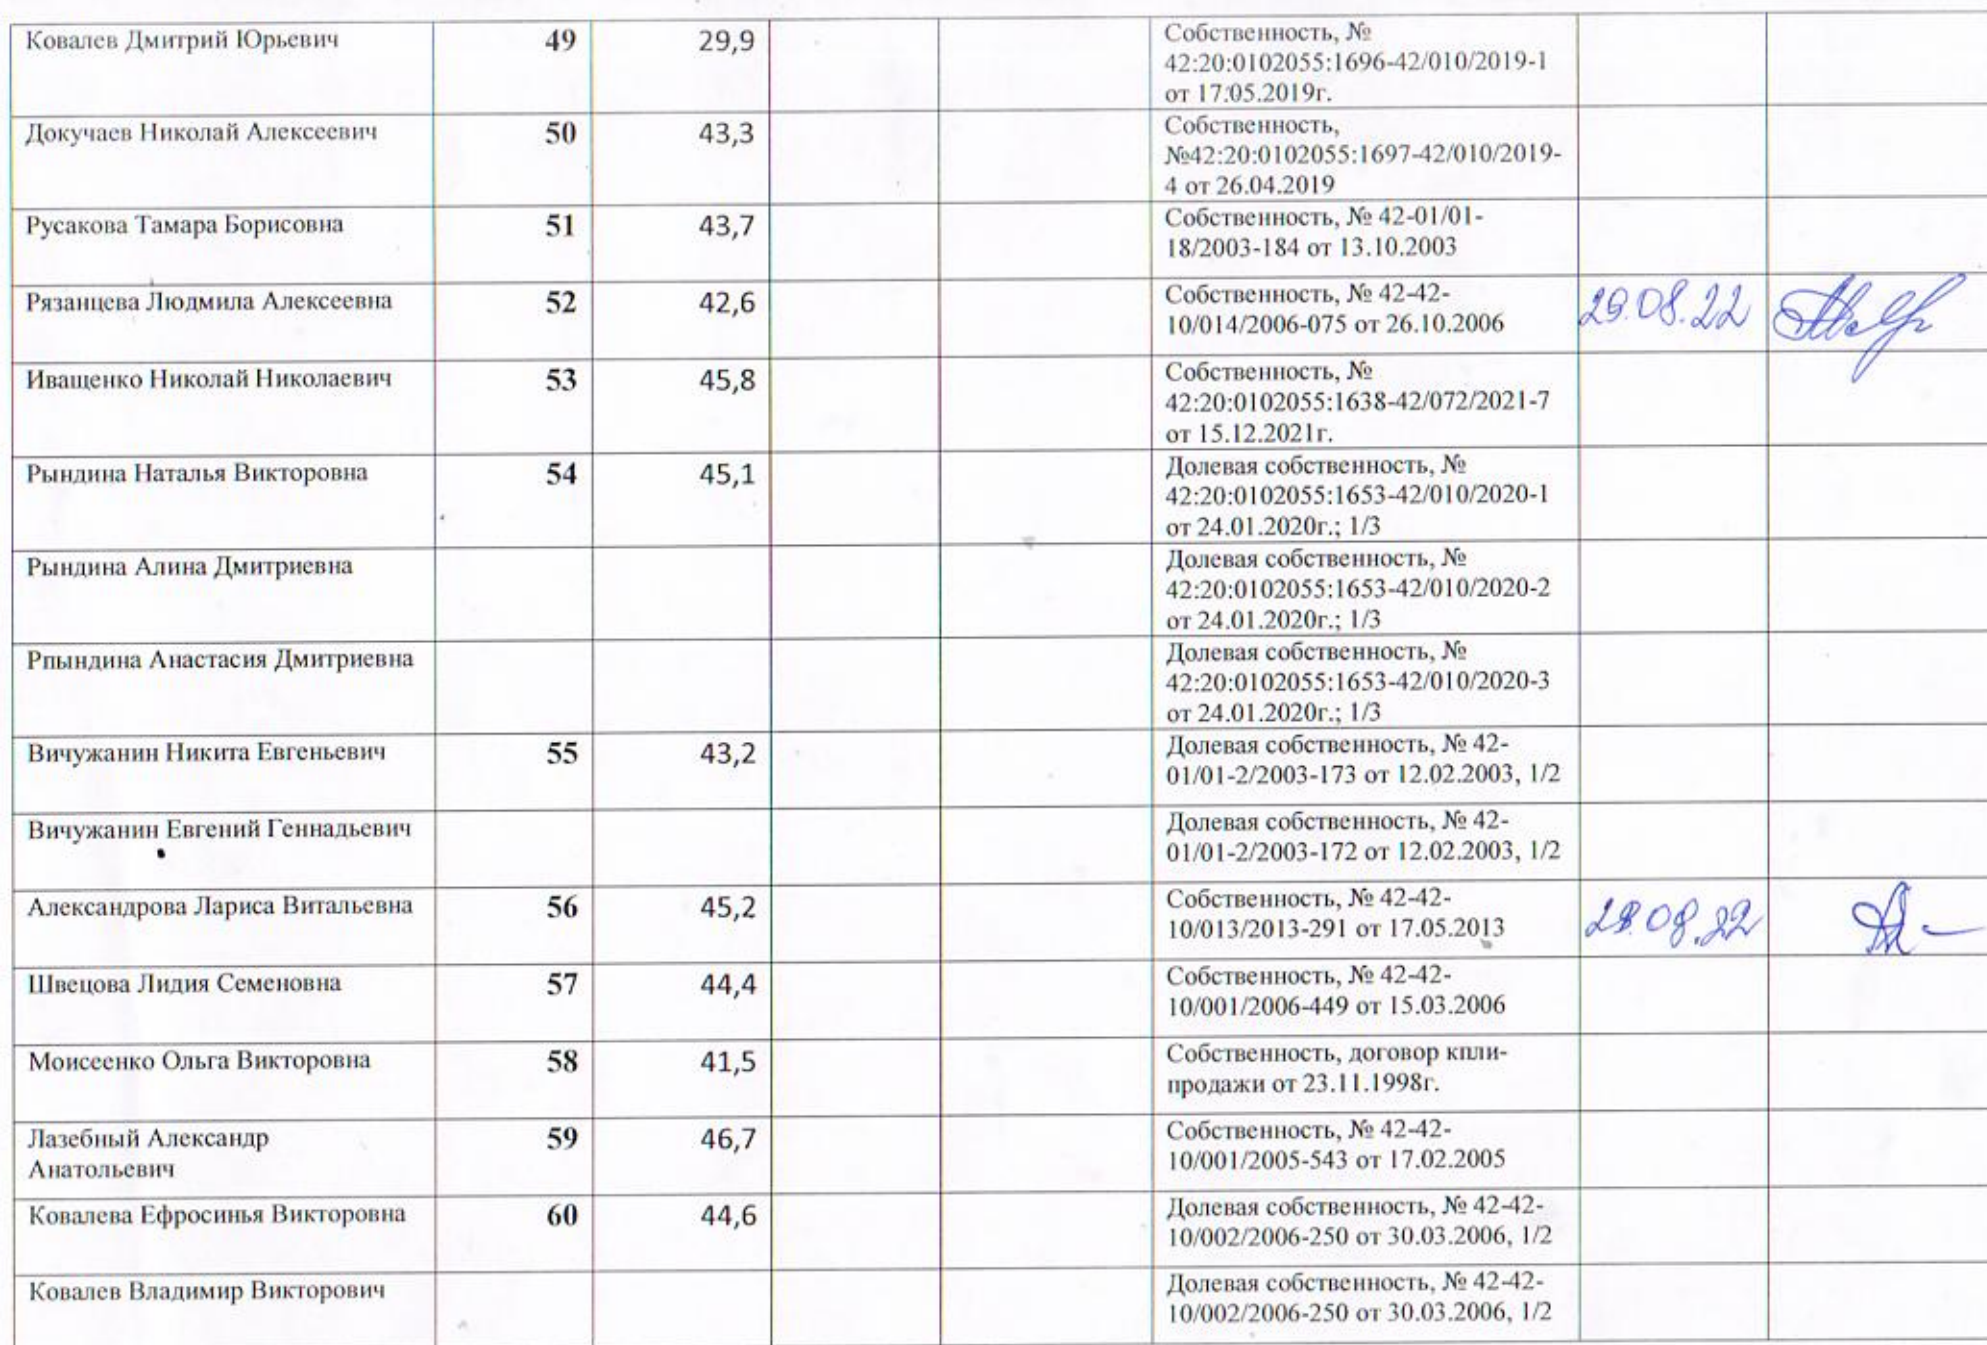 Ковалев Дмитрий Юрьевич 49 29,9 Собственность, №
42:20:0102055:1696-42/010/2019-1
от 17.05.2019г.
Докучаев Николай Алексеевич 50 43,3 Собственность,
№42:20:0102055:1697-42/010/2019-
4 от 26.04.2019
Русакова Тамара Борисовна 51 43,7 Собственность, № 42-01/01-
18/2003-184 от 13.10.2003
Рязанцева Людмила Алексеевна 52 42,6 Собственность, № 42-42- 29.08.22
10/014/2006-075 от 26.10.2006
Иващенко Николай Николаевич 53 45,8 Собственность, №
42:20:0102055:1638-42/072/2021-7
от 15.12.2021г.
Рындина Наталья Викторовна 54 45,1 Долевая собственность, №
42:20:0102055:1653-42/010/2020-1
от 24.01.2020г.; 1/3
Рындина Алина Дмитриевна Долевая собственность, №
42:20:0102055:1653-42/010/2020-2
от 24.01.2020г.; 1/3
Рпындина Анастасия Дмитриевна Долевая собственность, №
42:20:0102055:1653-42/010/2020-3
от 24.01.2020г.; 1/3
Вичужанин Никита Евгеньевич 55 43,2 Долевая собственность, № 42-
01/01-2/2003-173 от 12.02.2003, 1/2
Вичужанин Евгений Геннадьевич Долевая собственность, № 42-
01/01-2/2003-172 от 12.02.2003, 1/2
Александрова Лариса Витальевна 56 45,2 Собственность, № 42-42-
10/013/2013-291 от 17.05.2013
Швецова Лидия Семеновна 57 44,4 Собственность, № 42-42-
10/001/2006-449 от 15.03.2006
Моисеенко Ольга Викторовна 58 41,5 Собственность, договор кпли-
продажи от 23.11.1998г.
Лазебный Александр 59 46,7 Собственность, № 42-42-
Анатольевич 10/001/2005-543 от 17.02.2005
Ковалева Ефросинья Викторовна 60 44,6 Долевая собственность, № 42-42-
10/002/2006-250 от 30.03.2006, 1/2
Ковалев Владимир Викторович Долевая собственность, № 42-42-
10/002/2006-250 от 30.03.2006, 1/2